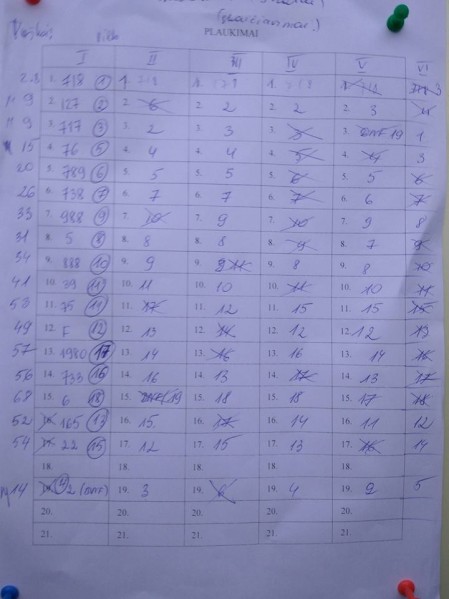 PLAUKIMAI
I II III IV V VI
1. 718 ① 1. 1. 1. 1.
9 2. 127 ② 2. 6 2. 2 2. 2 2. 3
9 3. 717 ③ 3. 2 3. 3 3. 3. DNF 19 1
15 4. 76 ⑤ 4. 4 4. 4 4. 5 4. 3
20 5. 789 ⑥ 5. 5 5. 5 5. 6 5. 5 6
26 6. 738 ⑦ 6. 7 6. 7 6. 7 6. 6 7
33 7. 988 ⑨ 7. 10 7. 9 7. 10 7. 9 8
31 8. 5 ⑧ 8. 8 8. 8 8. 9 8. 7 9
34 9. 888 ⑩ 9. 9 9. 11 9. 8 9. 8 10
41 10. 39 ⑪ 10. 11 10. 10 10. 11 10. 10 11
53 11. 75 11. 17 11. 12 11. 15 11. 15 15
49 12. F ⑫ 12. 13 12. 14 12. 12 12. 12 13
57 13. 1980 ⑰ 13. 14 13. 16 13. 16 13. 14 16
56 14. 733 ⑯ 14. 16 14. 13 14. 17 14. 13 17
68 15. 6 ⑱ 15. DNF 19 15. 18 15. 18 15. 17 18
52 16. 165 ⑬ 16. 15 16. 17 16. 14 16. 11 12
54 17. 22 ⑮ 17. 12 17. 15 17. 13 17. 16 14
18. 18. 18. 18. 18.
14 19. 2 19. 3 19. 6 19. 4 19. 2 5
20. 20. 20. 20. 20.
21. 21. 21. 21. 21.